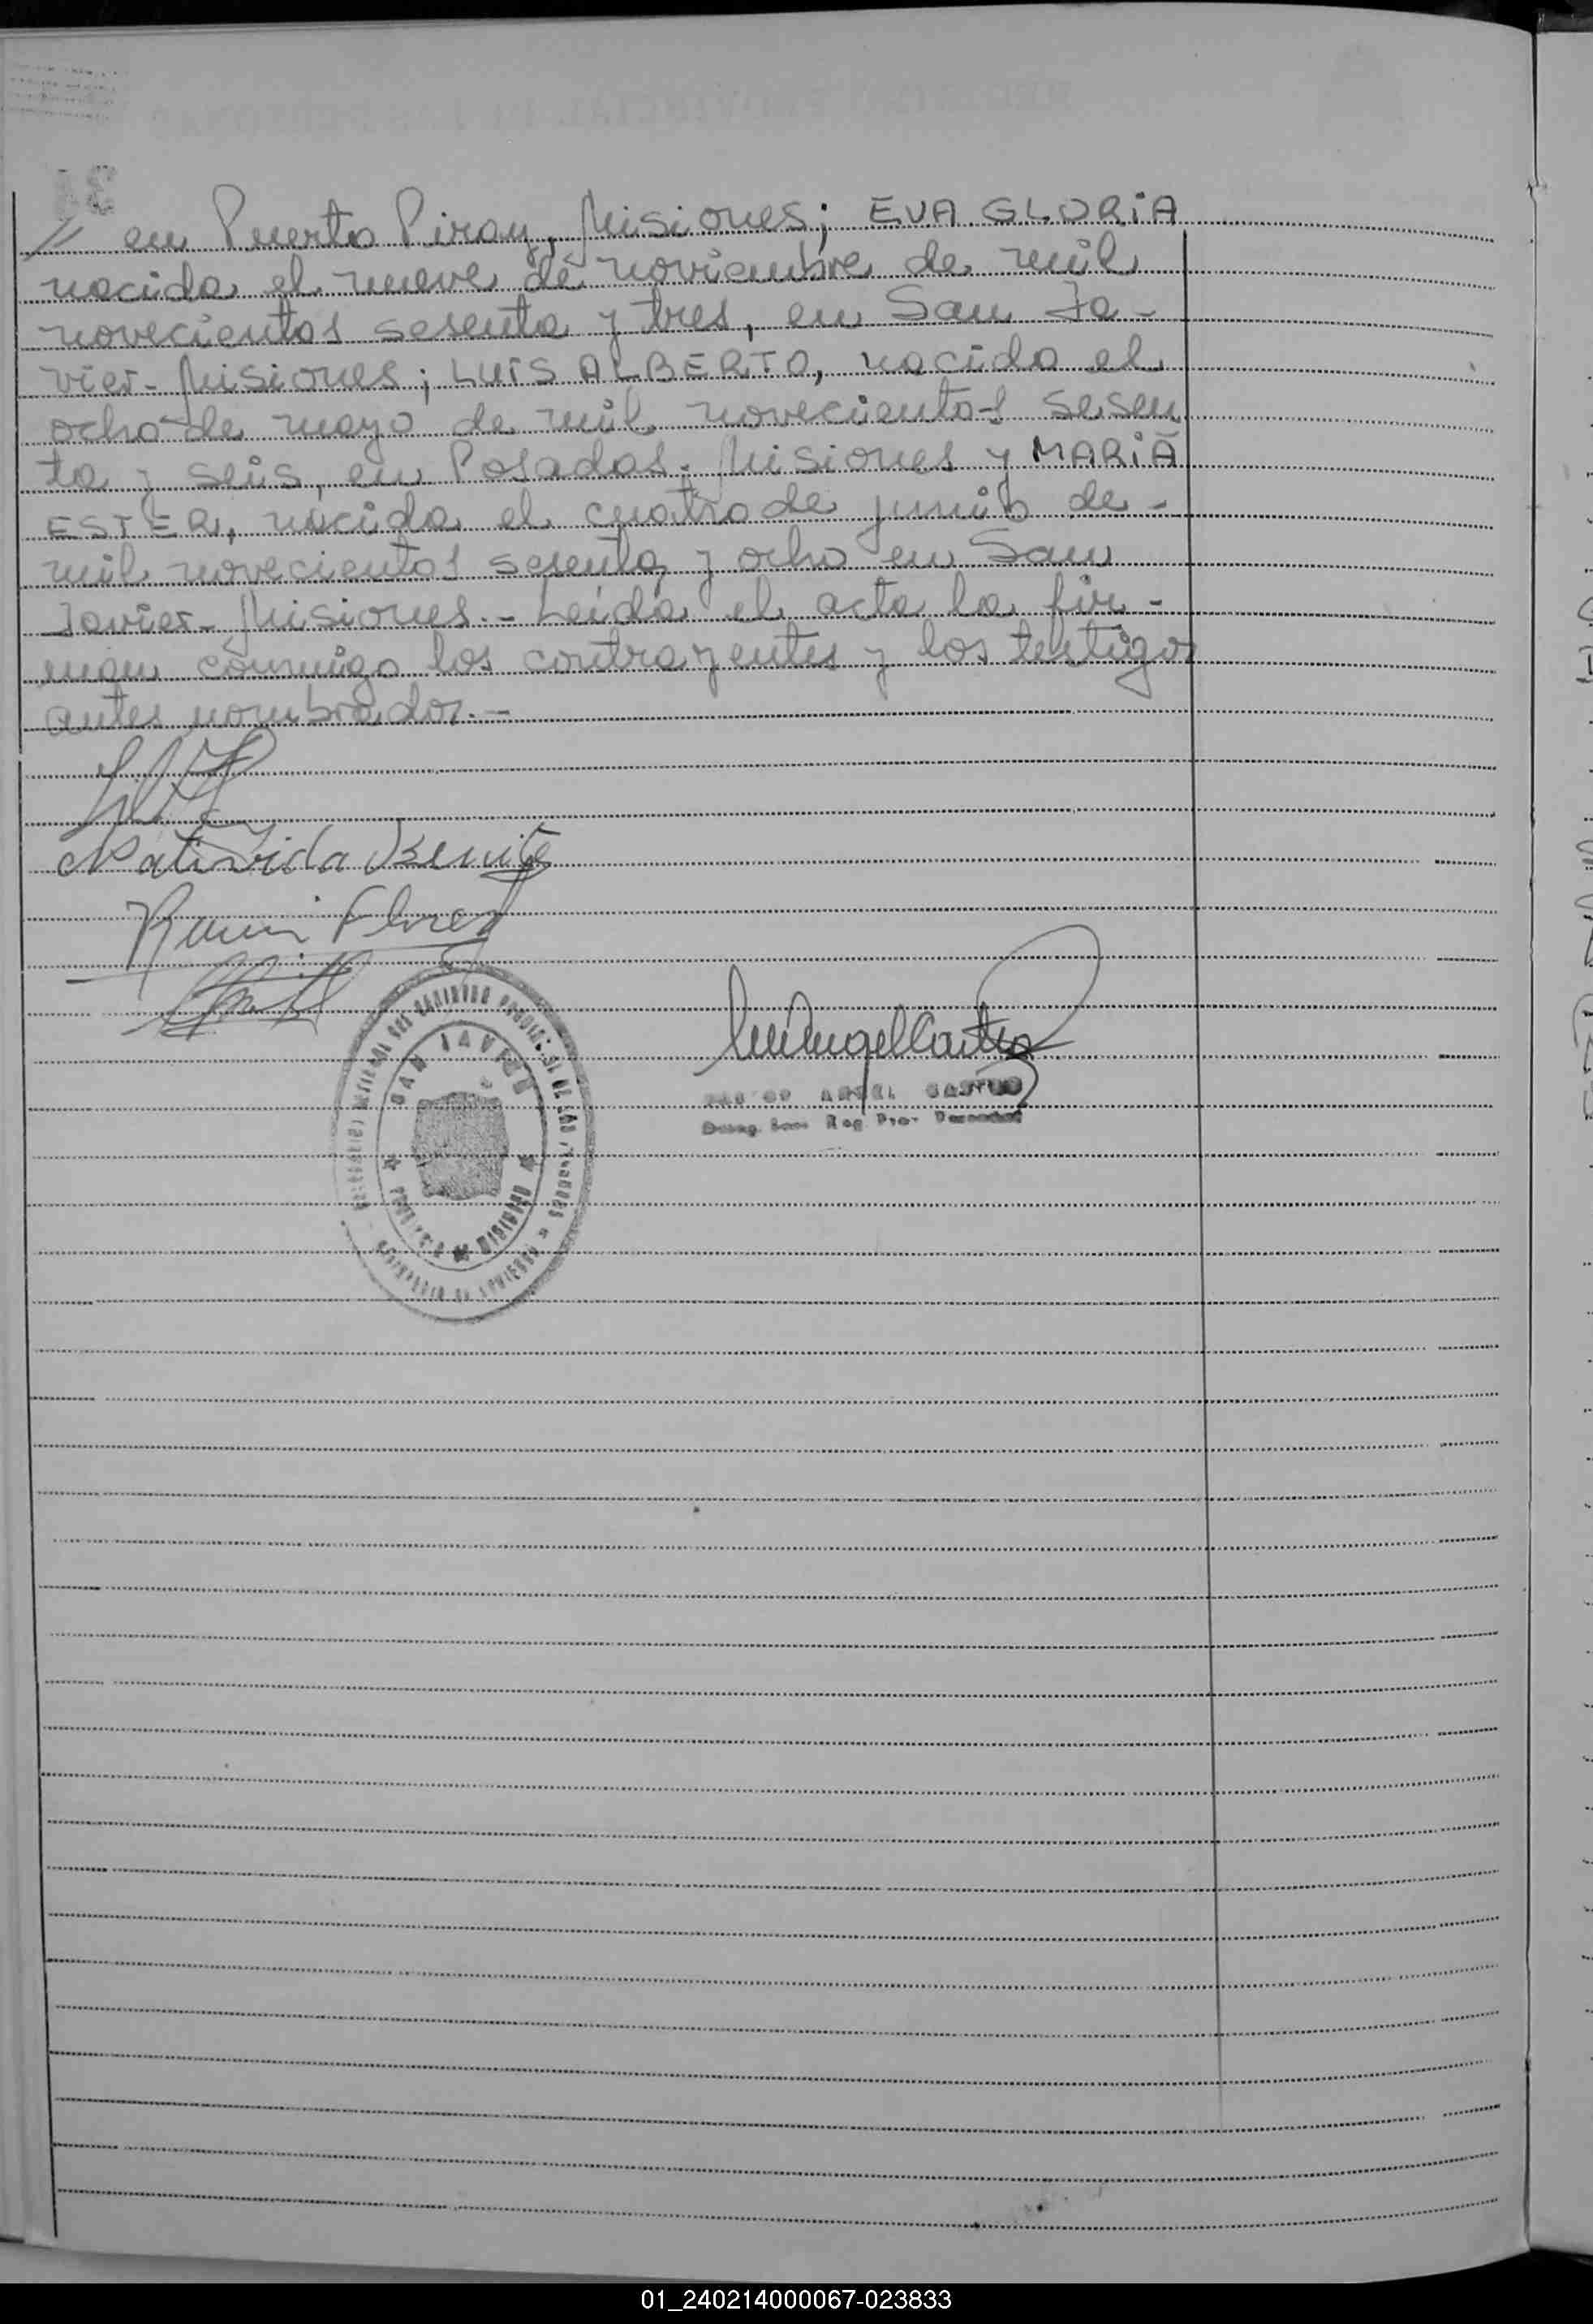 // en Puerto Piray, Misiones; EVA GLORIA
nacida el nueve de noviembre de mil
novecientos sesenta y tres, en San Ja-
vier- Misiones; LUIS ALBERTO, nacido el
ocho de mayo de mil novecientos sesen
ta y seis, en Posadas- Misiones y MARIA
ESTER, nacida el cuatro de junio de-
mil novecientos sesenta y ocho en San
Javier- Misiones.- Leída el acta la fir-
man conmigo los contrayentes y los testigos
antes nombrados.-
Natividá Benite
Ramon Flores
SAN JAVIER
MISIONES
ANGEL CASTRO
01_240214000067-023833